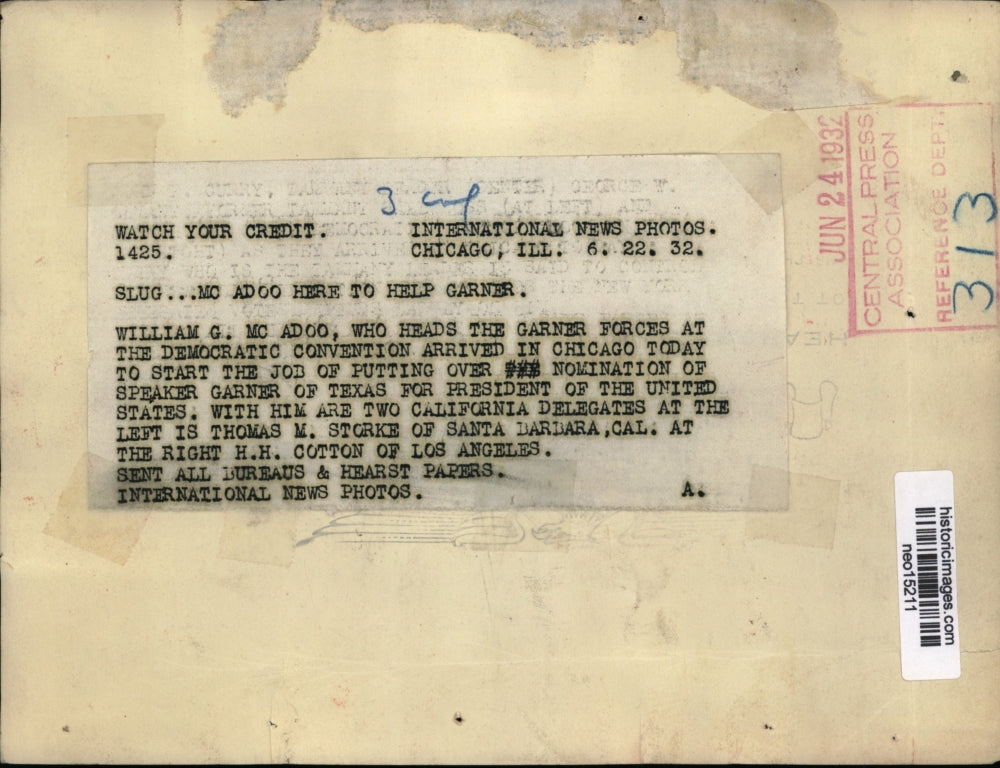 3 col
WATCH YOUR CREDIT. INTERNATIONAL NEWS PHOTOS.
1425. CHICAGO, ILL. 6. 22. 32.
SLUG...MC ADOO HERE TO HELP GARNER.
WILLIAM G. MC ADOO, WHO HEADS THE GARNER FORCES AT
THE DEMOCRATIC CONVENTION ARRIVED IN CHICAGO TODAY
TO START THE JOB OF PUTTING OVER ### NOMINATION OF
SPEAKER GARNER OF TEXAS FOR PRESIDENT OF THE UNITED
STATES. WITH HIM ARE TWO CALIFORNIA DELEGATES AT THE
LEFT IS THOMAS M. STORKE OF SANTA BARBARA,CAL. AT
THE RIGHT H.H. COTTON OF LOS ANGELES.
SENT ALL BUREAUS & HEARST PAPERS.
INTERNATIONAL NEWS PHOTOS. A.
JUN 24 1932
CENTRAL PRESS
ASSOCIATION
REFERENCE DEPT.
313
historicimages.com
neo15211